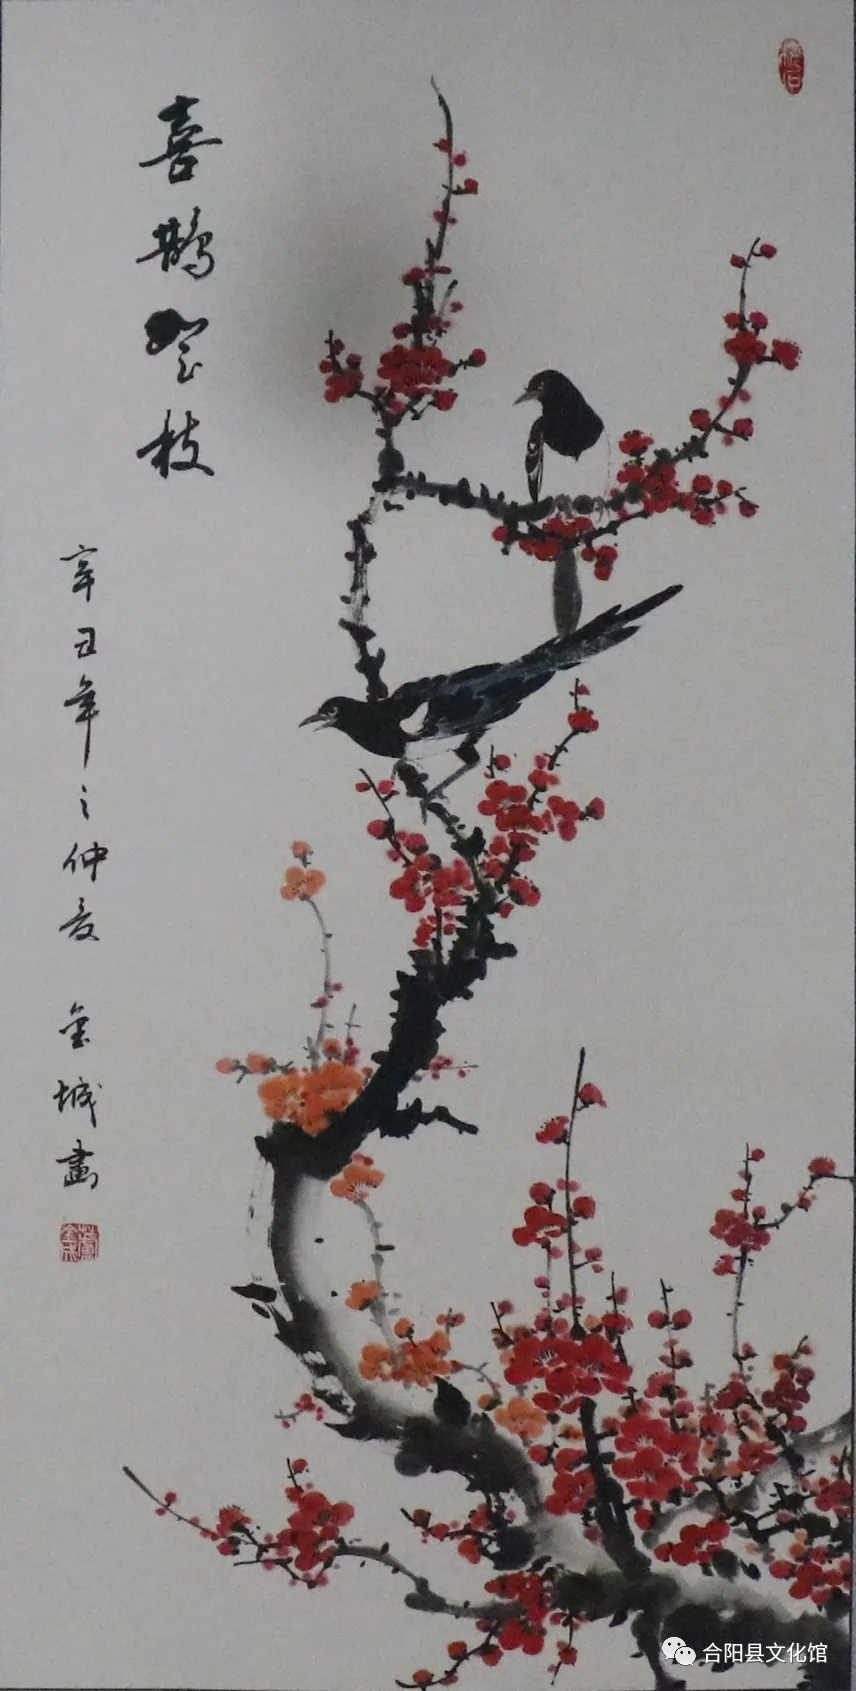 喜鹊登枝
辛丑年之仲夏 金城画
合阳县文化馆